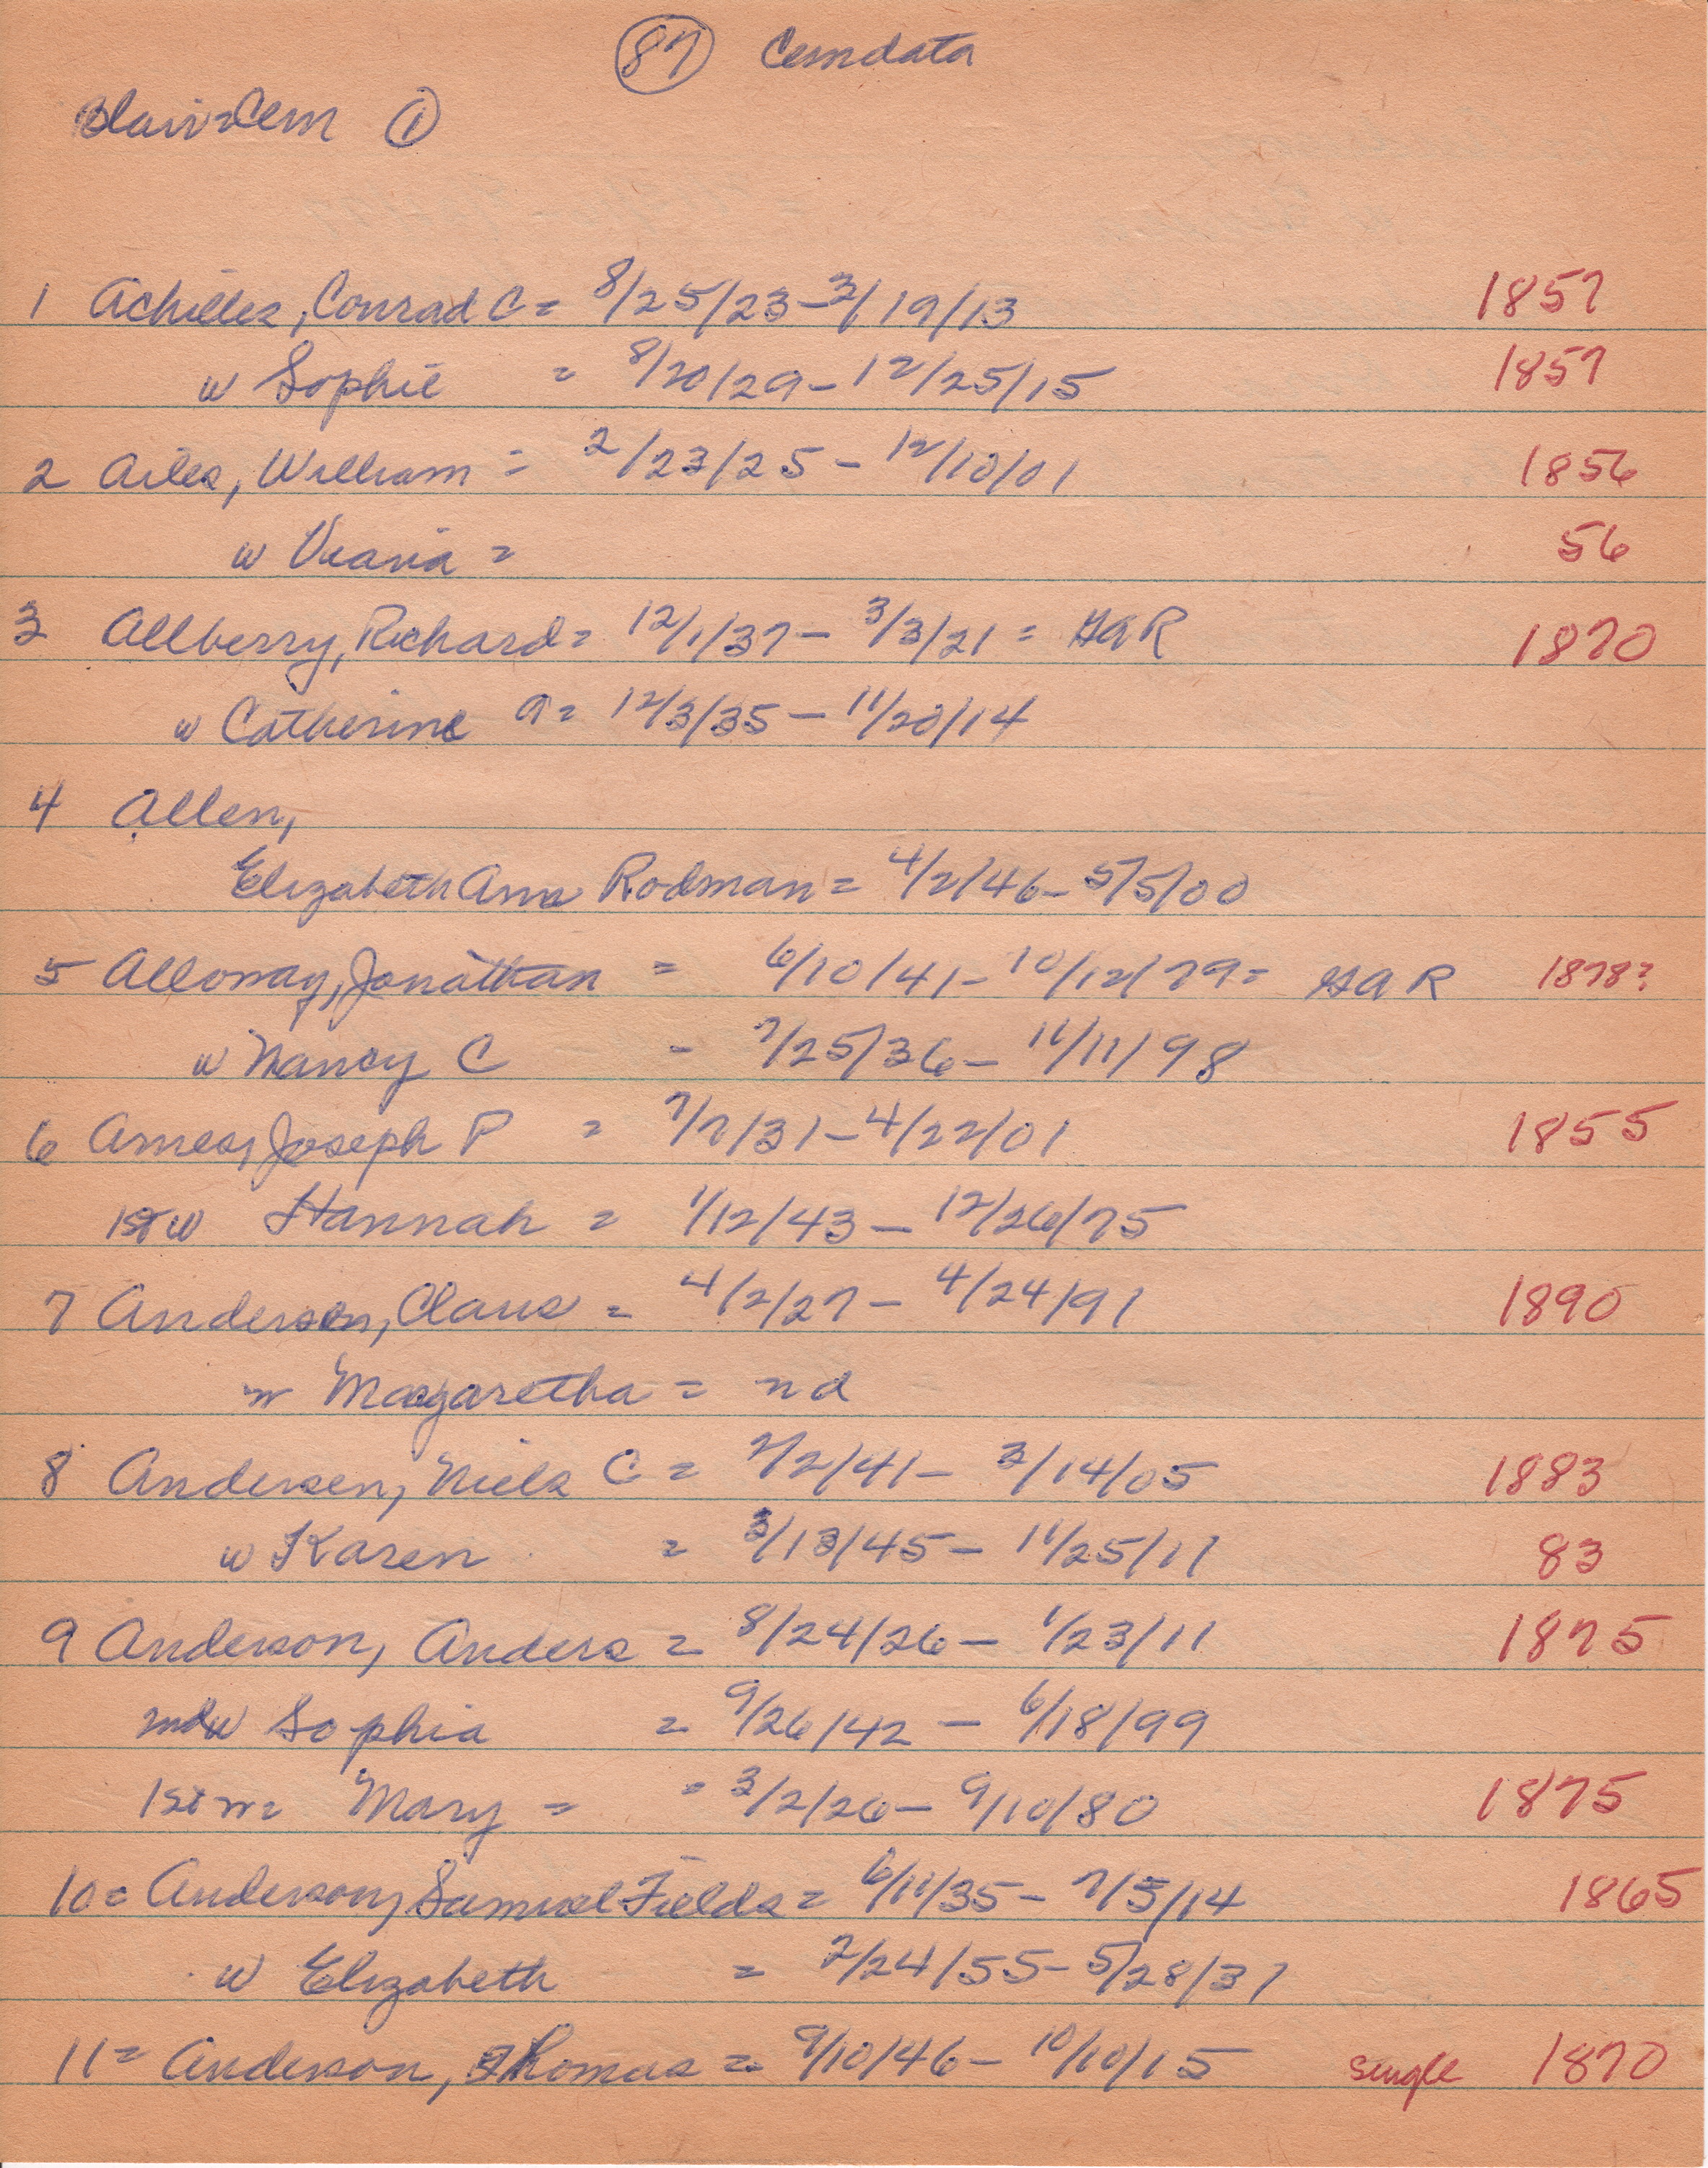 87 Cemdata
Blair=Cem 1
1 Achilles, Conrad C = 8/25/23-3/19/13 1857
w Sophie = 8/20/29-12/25/15 1857
2 Ailes, William = 2/23/25-12/10/01 1856
w = 56
3 Allberry, Richard = 12/1/37-3/3/21 = GAR 1870
w Catherine A = 12/3/35-11/20/14
4 Allen,
Elizabeth Ann Rodman = 4/2/46-5/5/00
5 Alloway, Jonathan = 6/10/41-10/12/79 = GAR 1878?
w Nancy C - 7/25/36-11/11/98
6 Ames, Joseph P = 7/7/31-4/22/01 1855
1st w Hannah = 1/12/43-12/26/75
7 Andersen, Claus = 4/2/27-4/24/91 1890
w Margaretha = nd
8 Andersen, Niels C = 7/2/41-3/14/05 1883
w Karen = 3/13/45-11/25/17 83
9 Anderson, Anders = 8/24/26-1/23/11 1875
2nd w Sophia = 9/26/42-6/18/99
1st w = Mary = = 3/2/26-9/10/80 1875
10 = Anderson, Samuel Fields = 6/11/35-7/5/14 1865
w Elizabeth = 2/24/55-5/28/37
11 = Anderson, Thomas = 9/10/46-10/10/15 single 1870